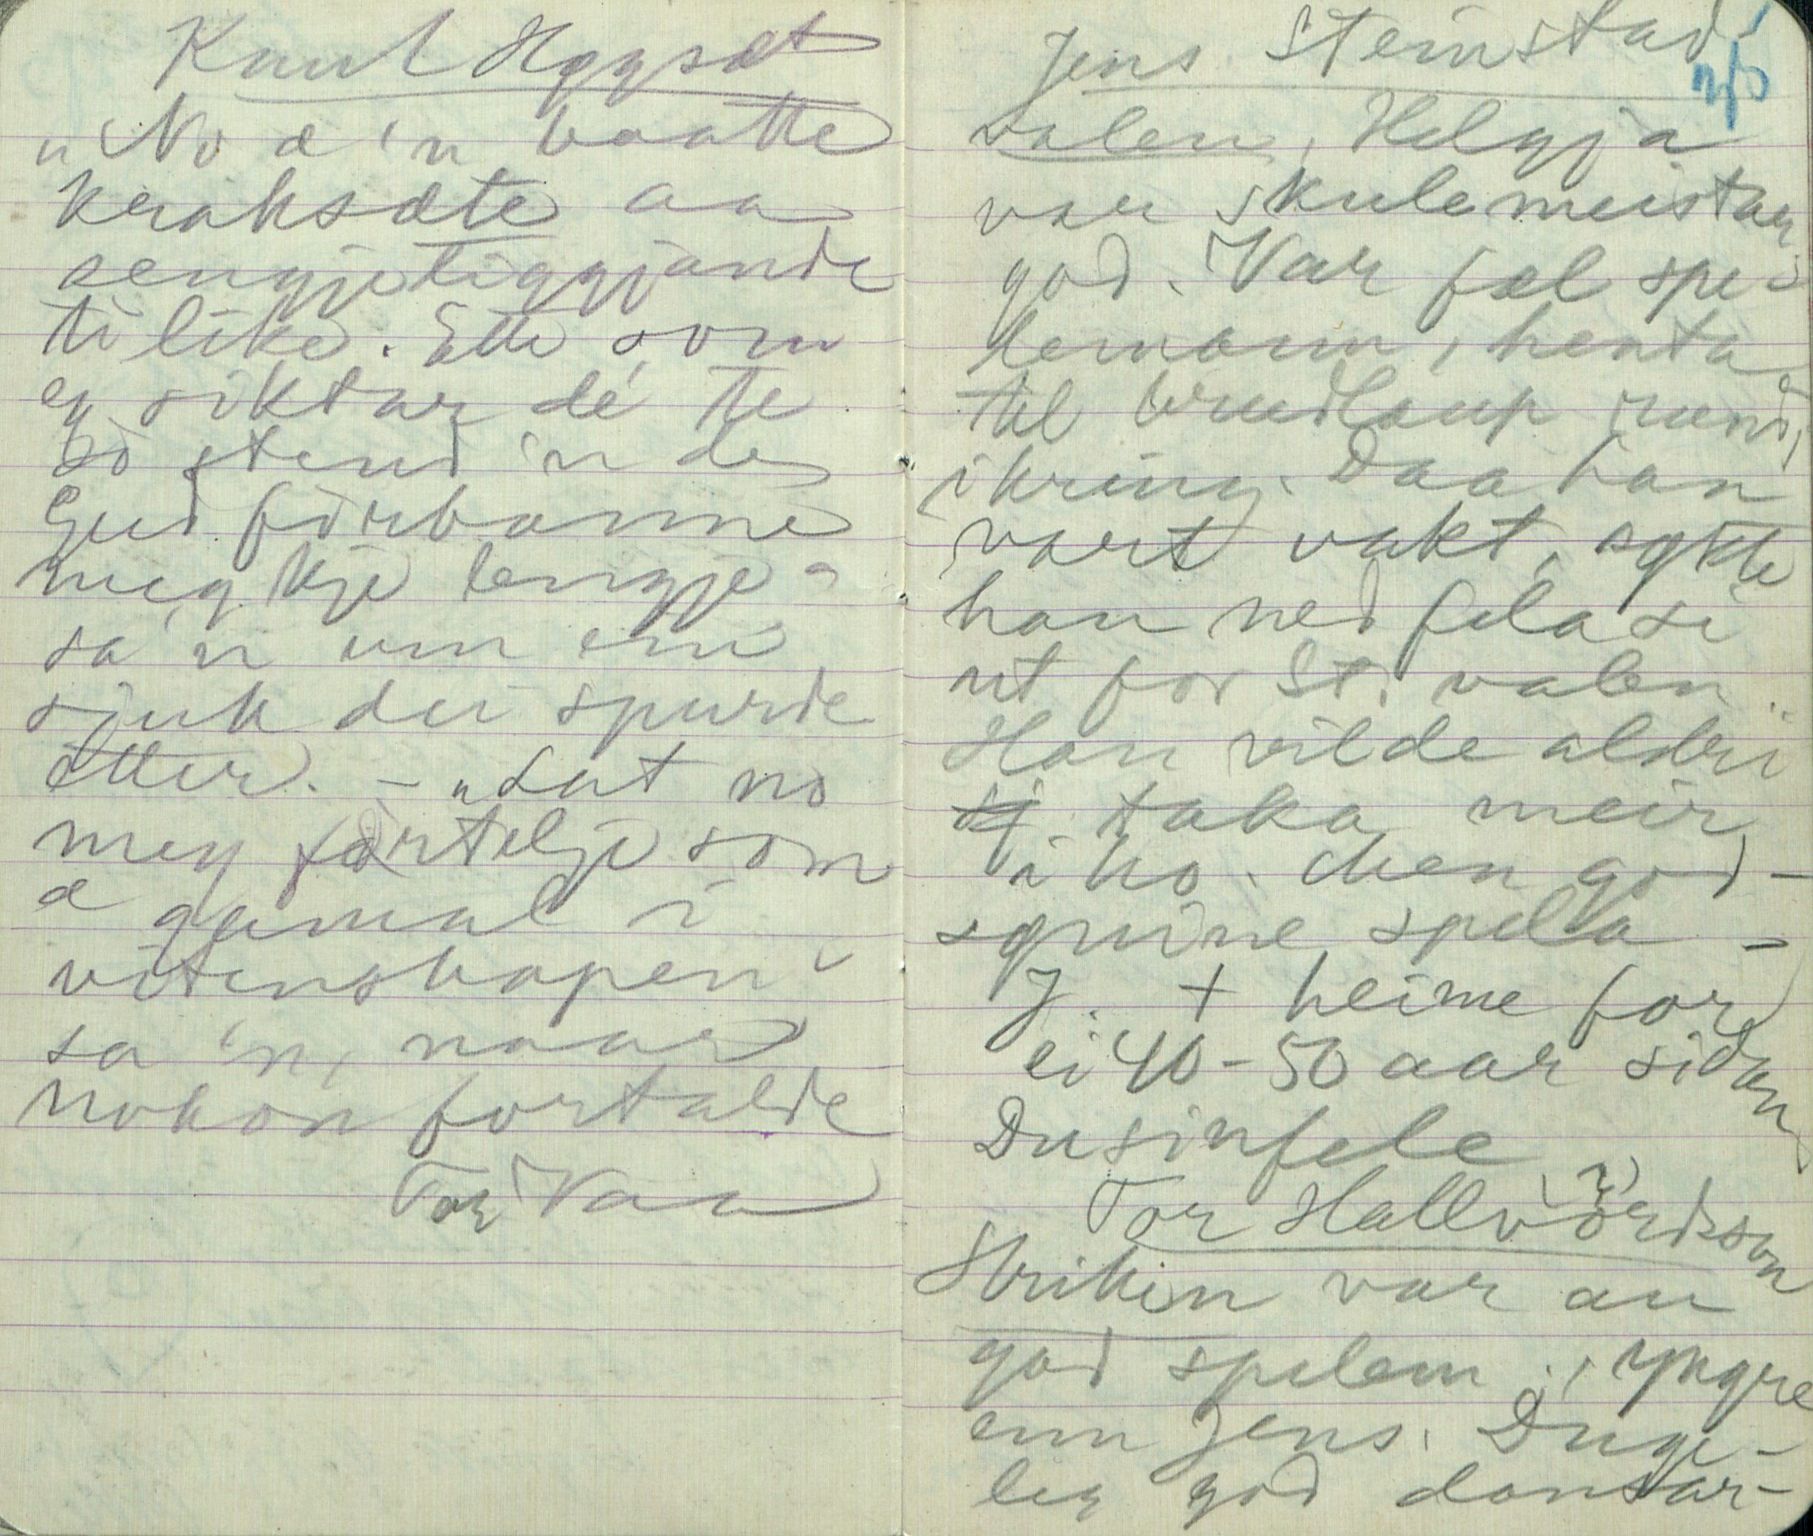 Knut Hggsæt
"No æ 'n baatte
kraksæte aa
sengjeliggjande
tilike. Ette som
eg siktar de te
so stend 'n de
Gud forbanne
meg kje lengje"
sa 'n um ein
sjuk dei spurde
etter. - "Lat no
meg fortelje som
æ gamal i
vitenskapen"
sa 'n, naar
nokon fortalde
Tor Vaa
Jens Steinstad
valen, Helgja
var skulemeistar
god. Var fæl spe-
lemann, henta
til brudlaup rund,
ikring. Daa han
vart vakt, søkkte
han ned fela si
ut for St. valen.
Han vilde aldri
taka meir
i ho. Men god-
spela -
J. + heime for
ei 40-50 aar sidan
Dusinfele
Tor Hallvordsson
Strikin var au
god spelem., yngre
enn Jens. Duge-
leg god dansar-